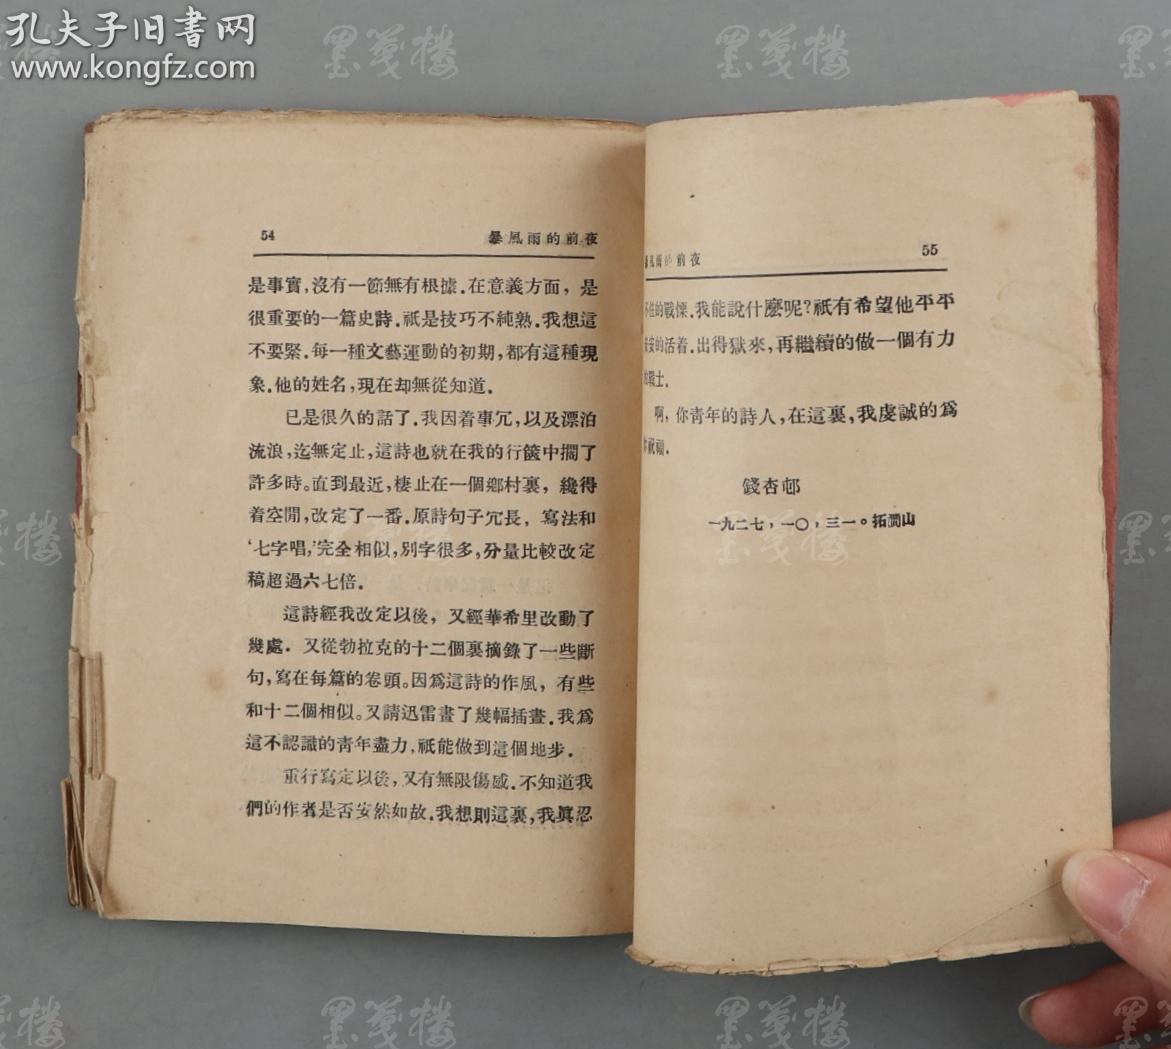 孔夫子旧书网
www.kongfz.com
54
暴風雨的前夜
是事實，沒有一節無有根據．在意義方面，是
很重要的一篇史詩．祇是技巧不純熟．我想這
不要緊．每一種文藝運動的初期，都有這種現
象．他的姓名，現在却無從知道．
已是很久的話了．我因着事冗，以及漂泊
流浪，迄無定止，這詩也就在我的行篋中擱了
許多時。直到最近，棲止在一個鄉村裏，纔得
着空閒，改定了一番．原詩句子冗長，寫法和
‘七字唱，’完全相似，別字很多，分量比較改定
稿超過六七倍．
這詩經我改定以後，又經華希里改動了
幾處．又從勃拉克的十二個裏摘錄了一些斷
句，寫在每篇的卷頭。因爲這詩的作風，有些
和十二個相似。又請迅雷畫了幾幅插畫．我爲
這不認識的靑年盡力，祇能做到這個地步．
重行寫定以後，又有無限傷感．不知道我
們的作者是否安然如故．我想則這裏，我眞忍
暴風雨的前夜
55
不住的戰慄．我能說什麼呢？祇有希望他平平
安安的活着．出得獄來，再繼續的做一個有力
的戰士．
啊，你靑年的詩人，在這裏，我虔誠的爲
你祝福．
錢杏邨
一九二七，一〇，三一。拓澗山
墨箋樓
墨箋樓
墨箋樓
墨箋樓
墨箋樓
墨箋樓
墨箋樓
墨箋樓